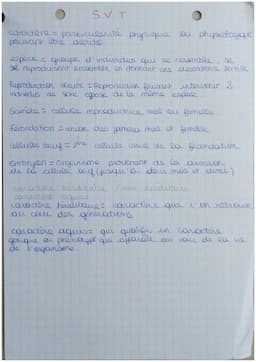 S.V.T
caractère = particularité physique ou physiologique
pouvant être décrite
espèce = groupe d'individus qui se ressemble, se
se reproduisent ensemble en donnant une descendance fertile
Reproduction sexuée = Reproduction faisant intervenir 2
individus de sexe opposé de la même espèce
Gamète = cellule reproductrice mâle ou femelle
Fécondation = union des gamètes mâle et femelle
cellule œuf = 1ère cellule issue de la fécondation
Embryon = organisme provenant de la division
de la cellule œuf (jusqu'à deux mois et demi)
caractère héréditaire / non héréditaire
caractère acquis
caractère héréditaire = caractère que l'on retrouve
au cours des générations
caractère acquis = qui qualifie un caractère
qui apparaît au cours de la vie
de l'organisme